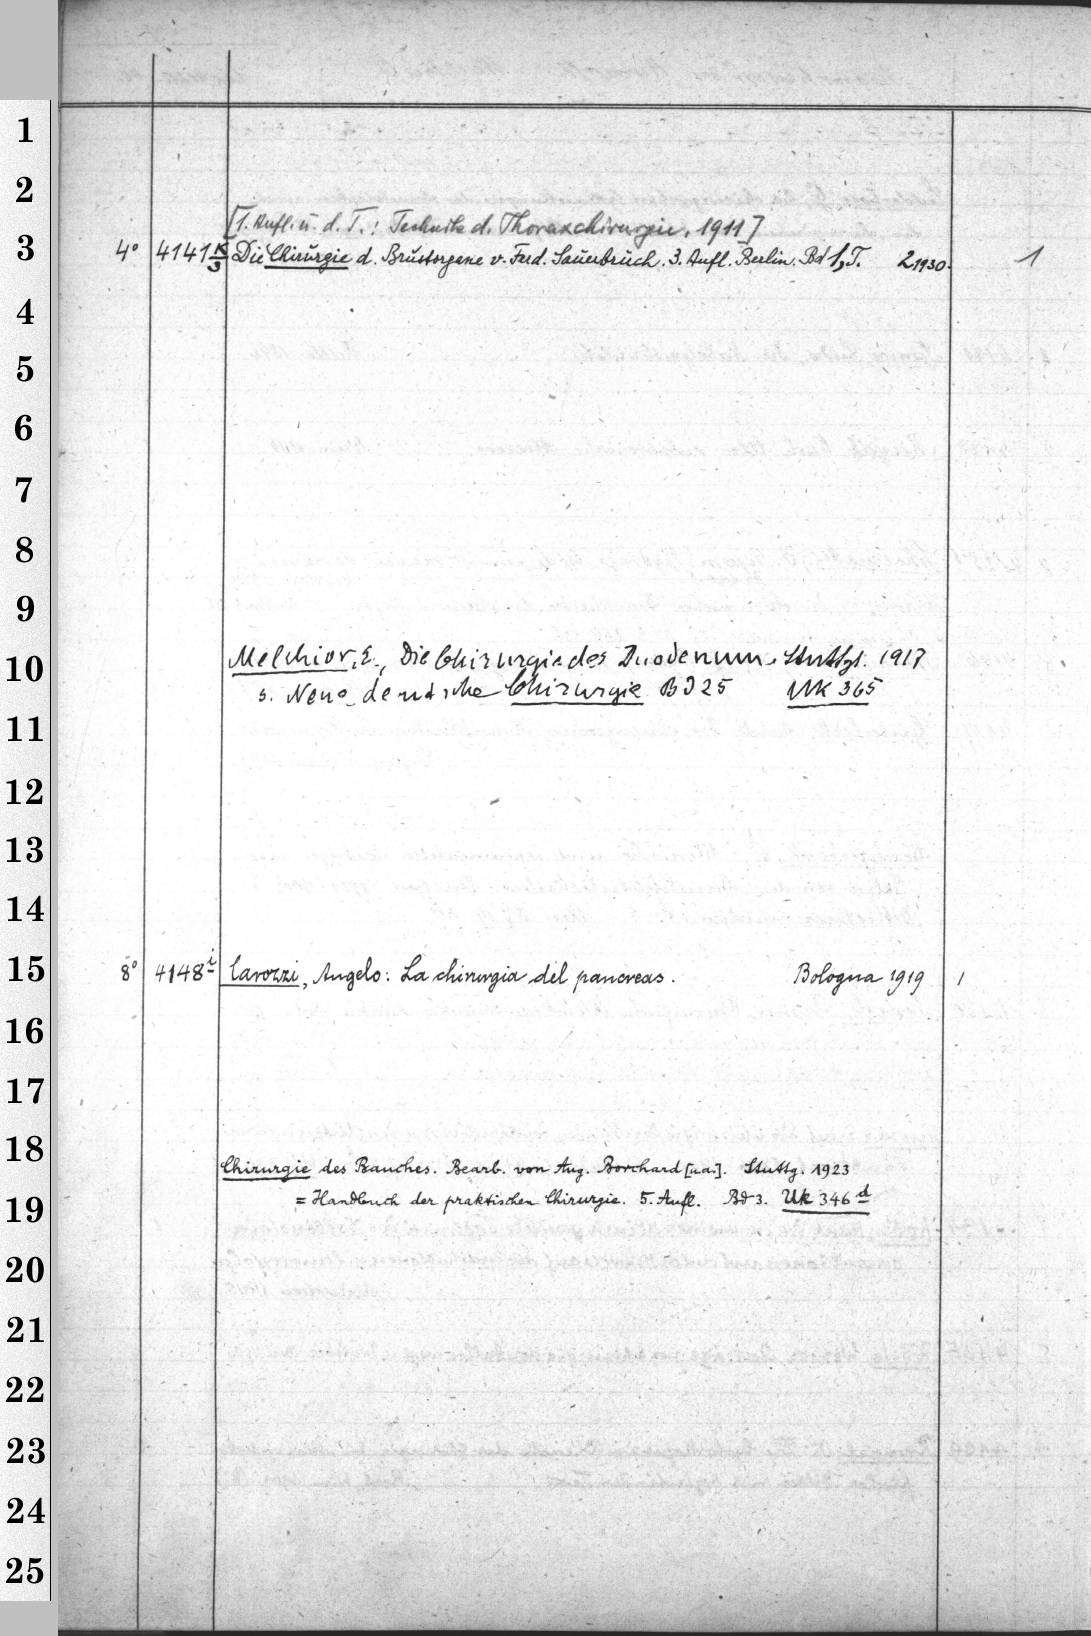 1
2
[1. Aufl. u. d. T.: Technik d. Thoraxchirurgie. 1911]
3 4° 4141 k/3 Die Chirurgie d. Brustorgane v. Ferd. Sauerbruch. 3. Aufl. Berlin. Bd 1, T. 2 1930. 1
4
5
6
7
8
9
10 Melchior, E., Die Chirurgie des Duodenum. Stuttgt. 1917
s. Neue deutsche Chirurgie Bd 25 Uk 365
11
12
13
14
15 8° 4148 i Carozzi, Angelo: La chirurgia del pancreas. Bologna 1919 1
16
17
18 Chirurgie des Bauches. Bearb. von Aug. Borchard [u.a.]. Stuttg. 1923
19 = Handbuch der praktischen Chirurgie. 5. Aufl. Bd 3. Uk 346 d
20
21
22
23
24
25